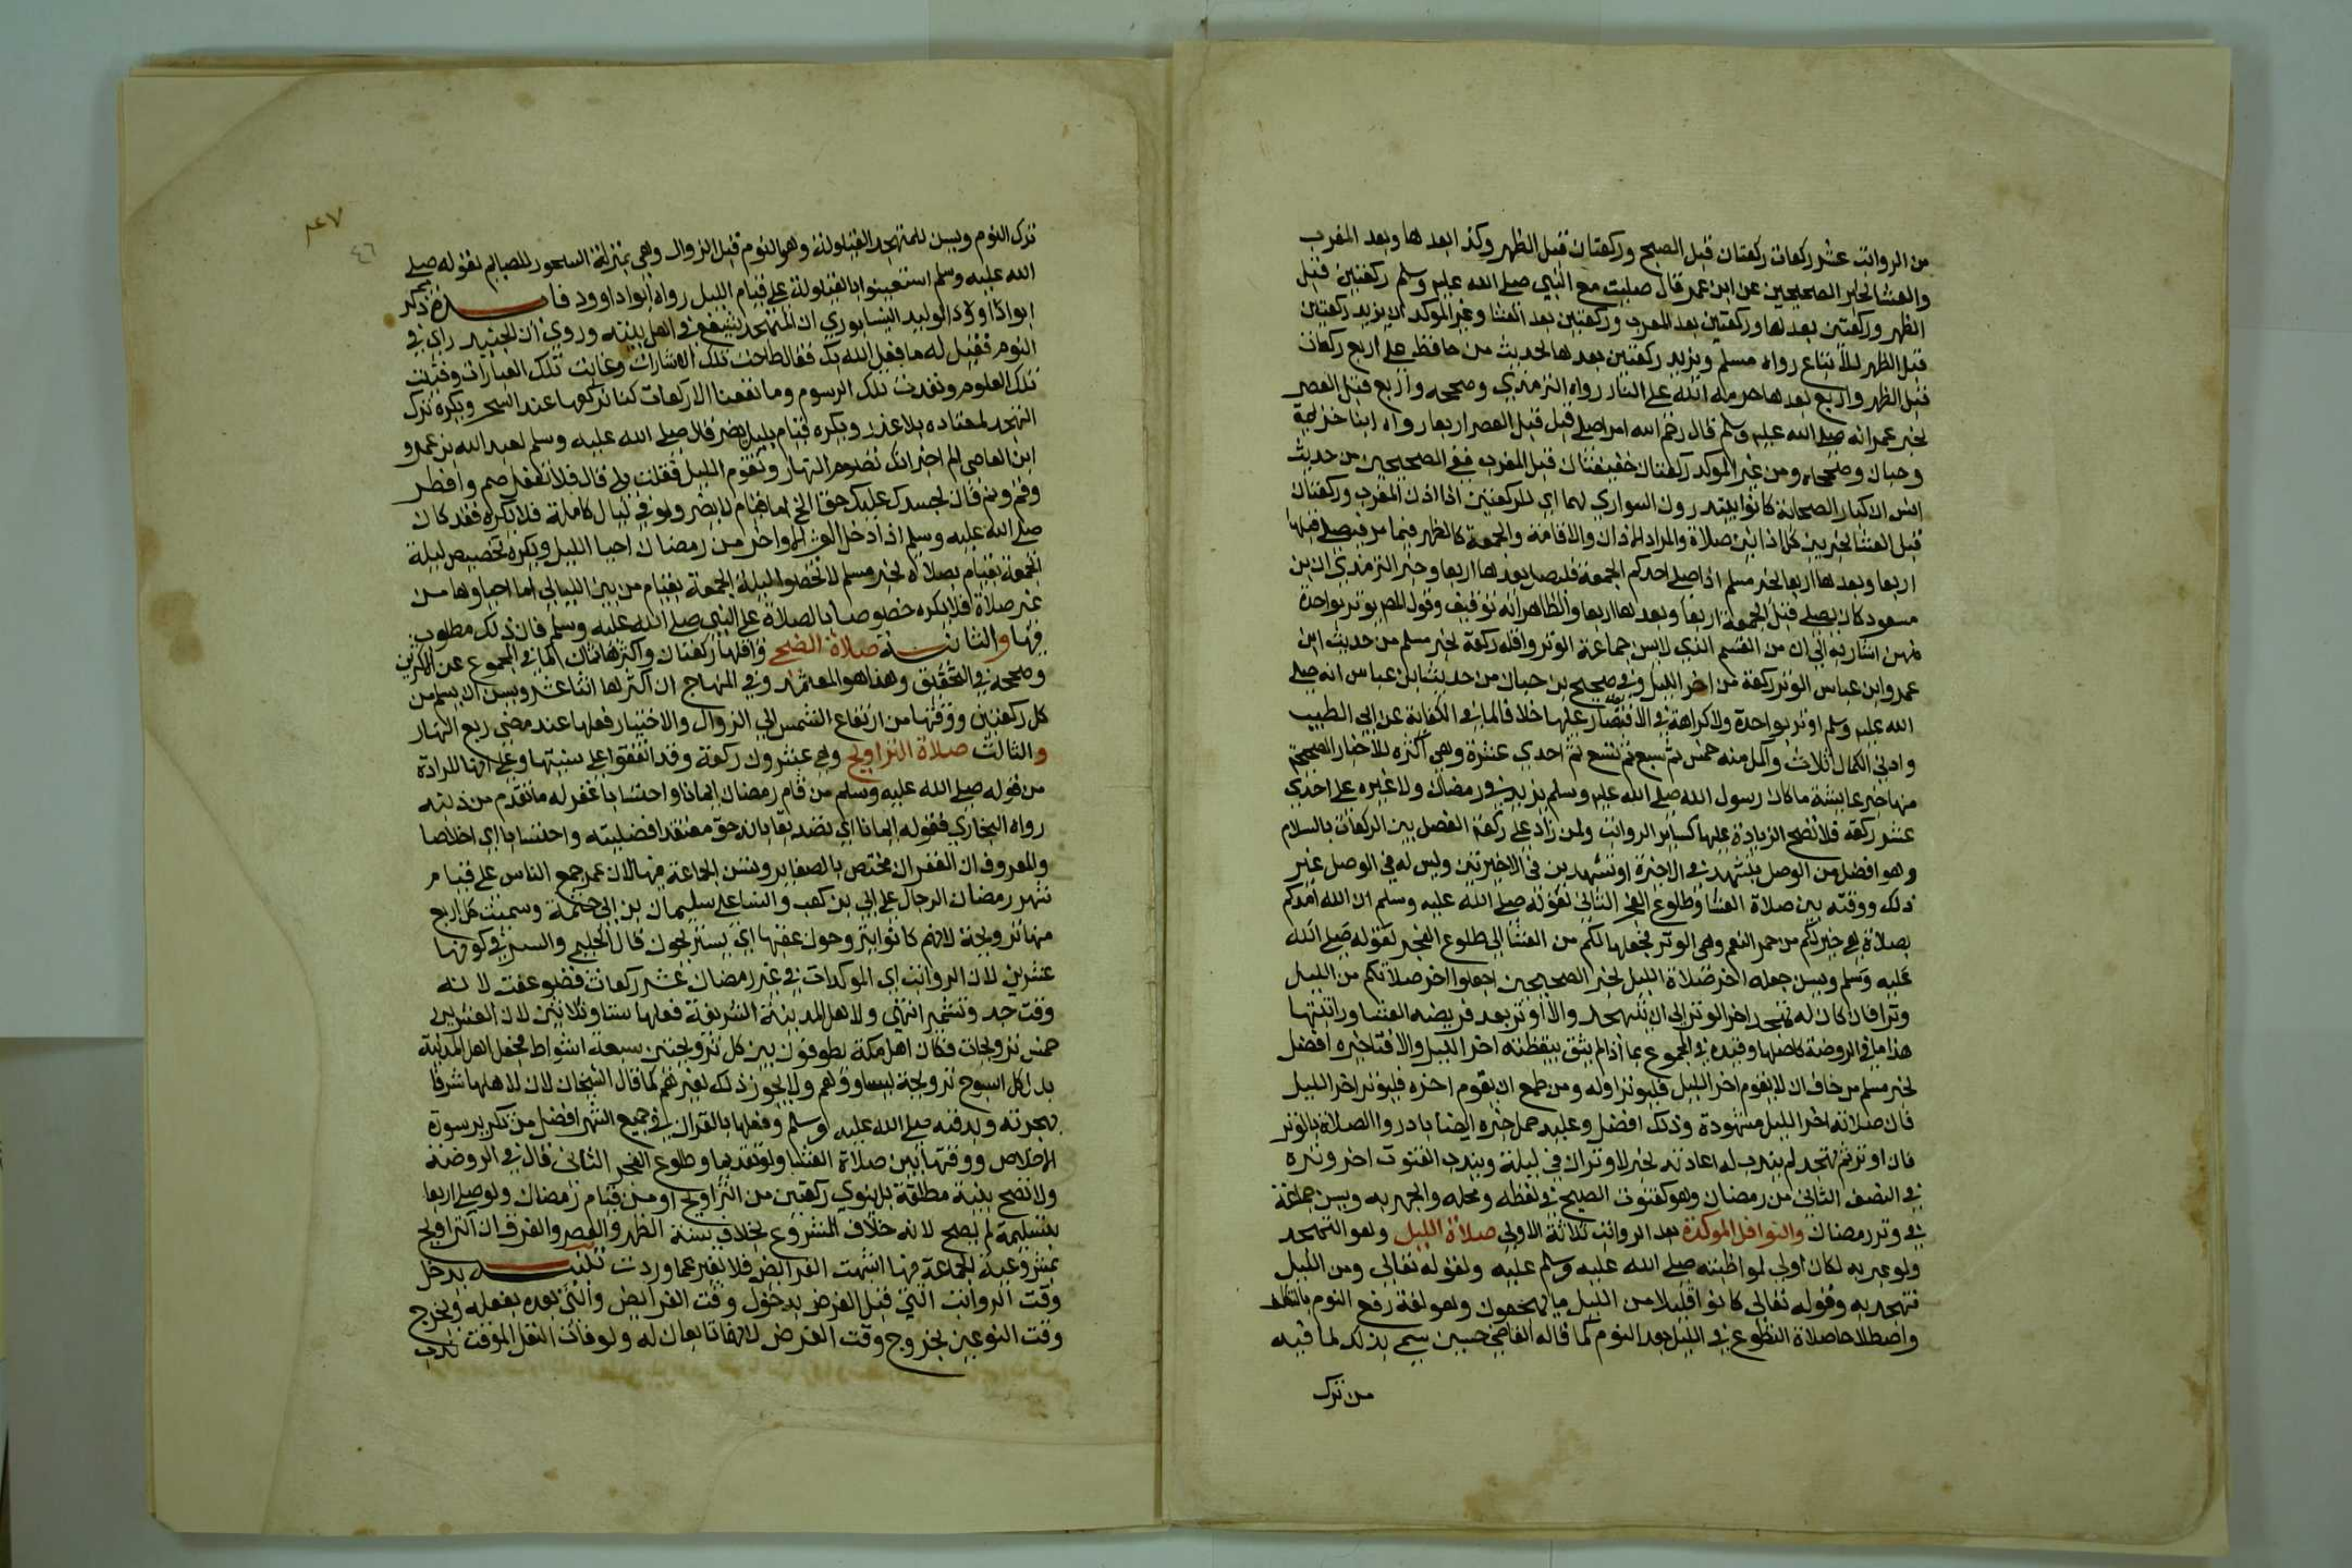 من الرواتب عشر ركعات ركعتان قبل الصبح وركعتان قبل الظهر وكذا بعدها وبعد المغرب
والعشا لخبر الصحيحين عن ابن عمر قال صليت مع النبي صلى الله عليه وسلم ركعتين قبل
الظهر وركعتين بعدها وركعتين بعد المغرب وركعتين بعد العشا وغير الموكد ان يزيد ركعتين
قبل الظهر للاتباع رواه مسلم ويزيد ركعتين بعدها لحديث من حافظ على اربع ركعات
قبل الظهر واربع بعدها حرمه الله على النار رواه الترمذي وصححه واربع قبل العصر
لخبر عمر انه صلى الله عليه وسلم قال رحم الله امرا صلى قبل قبل العصر اربعا رواه ابنا خزيمة
وحبان وصححاه ومن غير الموكد ركعتان خفيفتان قبل المغرب ففي الصحيحين من حديث
انس ان كبار الصحابة كانوا يبتدرون السواري لهما اي للركعتين اذا اذن المغرب وركعتان
قبل العشا لخبر بين كل اذانين صلاة والمراد الاذان والاقامة والجمعة كالظهر فيما مر فيصلي قبلها
اربعا وبعدها اربعا لخبر مسلم اذا صلى احدكم الجمعة فليصل بعدها اربعا وخبر الترمذي ان ابن
مسعود كان يصلي قبل الجمعة اربعا وبعدها اربعا والظاهر انه توقيف وقول المص يوتر بواحدة
منهن اشار به الى ان من القسم الذي لا يسن جماعة الوتر واقله ركعة لخبر مسلم من حديث ابن
عمر وابن عباس الوتر ركعة من اخر الليل وفي صحيح بن حبان من حديث ابن عباس انه صلى
الله عليه وسلم اوتر بواحدة ولا كراهة في الاقتصار عليها خلافا لما في الكفاية عن ابي الطيب
وادنى الكمال ثلاث واكمل منه خمس ثم سبع ثم تسع ثم احدى عشرة وهي اكثره للاخبار الصحيحة
منها خبر عايشة ما كان رسول الله صلى الله عليه وسلم يزيد في رمضان ولا غيره على احدى
عشر ركعة فلا تصح الزيادة عليها كساير الرواتب ولمن زاد على ركعة الفصل بين الركعات بالسلام
وهو افضل من الوصل بتشهد في الاخيرة او تشهدين في الاخيرتين وليس له في الوصل غير
ذلك ووقته بين صلاة العشا وطلوع الفجر الثاني لقوله صلى الله عليه وسلم ان الله امدكم
بصلاة هي خير لكم من حمر النعم وهي الوتر فجعلها لكم من العشا الى طلوع الفجر لقوله صلى الله
عليه وسلم ويسن جعله اخر صلاة الليل لخبر الصحيحين اجعلوا اخر صلاتكم من الليل
وترا فان كان له تهجد اخر الوتر الى ان يتهجد والا اوتر بعد فريضه العشا وراتبتها
هذا ما في الروضة كاصلها وقيده في المجموع بما اذا لم يثق بيقظته اخر الليل والا فتاخيره افضل
لخبر مسلم من خاف ان لا يقوم اخر الليل فليوتر اوله ومن طمع ان يقوم اخره فليوتر اخر الليل
فان صلاة اخر الليل مشهودة وذلك افضل وعليه حمل خبره ايضا بادروا الصلاة بالوتر
فان اوتر ثم تهجد لم يندب له اعادته لخبر لا وتران في ليلة ويندب القنوت اخر وتره
في النصف الثاني من رمضان وهو كقنوت الصبح في لفظه ومحله والجهر به ويسن جماعة
في وتر رمضان والنوافل الموكدة بعد الرواتب ثلاثة الاولى صلاة الليل وهو التهجد
ولو عبر به لكان اولى لمواظبته صلى الله عليه وسلم عليه ولقوله تعالى ومن الليل
فتهجد به وقوله تعالى كانوا قليلا من الليل ما يهجعون وهو لغة رفع النوم بالتكلف
واصطلاحا صلاة التطوع في الليل بعد النوم كما قاله القاضي حسين سمي بذلك لما فيه
من ترك
٤٧
٤٦
ترك النوم ويسن للمتهجد القيلولة وهو النوم قبل الزوال وهي بمنزلة السحور للصايم لقوله صلى
الله عليه وسلم استعينوا بالقيلولة على قيام الليل رواه ابو داوود فايدة ذكر
ابو الوليد النيسابوري ان المتهجد يشفع في اهل بيته وروي ان الجنيد راي في
النوم فقيل له ما فعل الله بك فقال طاحت تلك الاشارات وغابت تلك العبارات وفنيت
تلك العلوم ونفدت تلك الرسوم وما نفعنا الا ركعات كنا نركعها عند السحر ويكره ترك
التهجد لمعتاده بلا عذر ويكره قيام بليل يضر قال صلى الله عليه وسلم لعبد الله بن عمرو
ابن العاصي الم اخبر انك تصوم النهار وتقوم الليل فقلت بلى قال فلا تفعل صم وافطر
وقم ونم فان لجسدك عليك حقا الخ اما قيام لا يضر ولو في ليال كاملة فلا يكره فقد كان
صلى الله عليه وسلم اذا دخل العشر الاواخر من رمضان احيا الليل ويكره تخصيص ليلة
الجمعة بقيام بصلاة لخبر مسلم لا تخصوا ليلة الجمعة بقيام من بين الليالي اما احياوها من
غير صلاة فلا يكره خصوصا بالصلاة على النبي صلى الله عليه وسلم فان ذلك مطلوب
فيها والثانية صلاة الضحى واقلها ركعتان واكثرها ثمان كما في المجموع عن الاكثرين
وصححه في التحقيق وهذا هو المعتمد وفي المنهاج ان اكثرها اثنا عشر ويسن ان يسلم من
كل ركعتين ووقتها من ارتفاع الشمس الى الزوال والاختيار فعلها عند مضي ربع النهار
والثالث صلاة التراويح وهي عشرون ركعة وقد اتفقوا على سنيتها وعلى انها المرادة
من قوله صلى الله عليه وسلم من قام رمضان ايمانا واحتسابا غفر له ما تقدم من ذنبه
رواه البخاري فقوله ايمانا اي تصديقا بانه حق معتقدا فضيلته واحتسابا اي اخلاصا
والمعروف ان الغفران مختص بالصغاير وتسن الجماعة فيها لان عمر جمع الناس على قيام
شهر رمضان الرجال على ابي بن كعب والنسا على سليمان بن ابي حثمة وسميت كل اربع
منها ترويحة لانهم كانوا يتروحون عقبها اي يستريحون قال الحليمي والسر في كونها
عشرين لان الرواتب اي الموكدات في غير رمضان عشر ركعات فضوعفت لانه
وقت جد وتشمير انتهى ولاهل المدينة الشريفة فعلها ستا وثلاثين لان العشرين
خمس ترويحات فكان اهل مكة يطوفون بين كل ترويحتين سبعة اشواط فجعل اهل المدينة
بدل كل اسبوع ترويحة ليساووهم ولا يجوز ذلك لغيرهم كما قال الشيخان لان لاهلها شرفا
بهجرته ودفنه صلى الله عليه وسلم وفعلها بالقران في جميع الشهر افضل من تكرير سورة
الاخلاص ووقتها بين صلاة العشا ولو تقديما وطلوع الفجر الثاني قال في الروضة
ولا تصح بنية مطلقة بل ينوي ركعتين من التراويح او من قيام رمضان ولو صلى اربعا
بتسليمة لم يصح لانه خلاف المشروع بخلاف سنة الظهر والعصر والفرق ان التراويح
بمشروعية الجماعة فيها اشبهت الفرايض فلا تغير عما وردت تنبيه يدخل
وقت الرواتب التي قبل الفرض بدخول وقت الفرايض والتي بعده بفعله ويخرج
وقت النوعين بخروج وقت الفرض لانهما تابعان له ولو فات النفل الموقت ندب